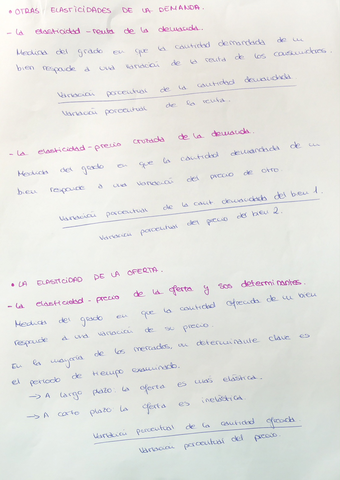 • OTRAS ELASTICIDADES DE LA DEMANDA.
- La elasticidad-renta de la demanda.
Medida del grado en que la cantidad demandada de un
bien responde a una variación de la renta de los consumidores.
Variación porcentual de la cantidad demandada
Variación porcentual de la renta.
- La elasticidad-precio cruzada de la demanda.
Medida del grado en que la cantidad demandada de un
bien responde a una variación del precio de otro
Variación porcentual de la cant demandada del bien 1.
Variación porcentual del precio del bien 2.
• LA ELASTICIDAD DE LA OFERTA.
- La elasticidad-precio de la oferta y sus determinantes.
Medida del grado en que la cantidad ofrecida de un bien
responde a una variación de su precio.
En la mayoría de los mercados, un determinante clave es
el periodo de tiempo examinado.
→ A largo plazo la oferta es más elástica.
→ A corto plazo la oferta es inelástica
Variación porcentual de la cantidad ofrecida
Variación porcentual del precio